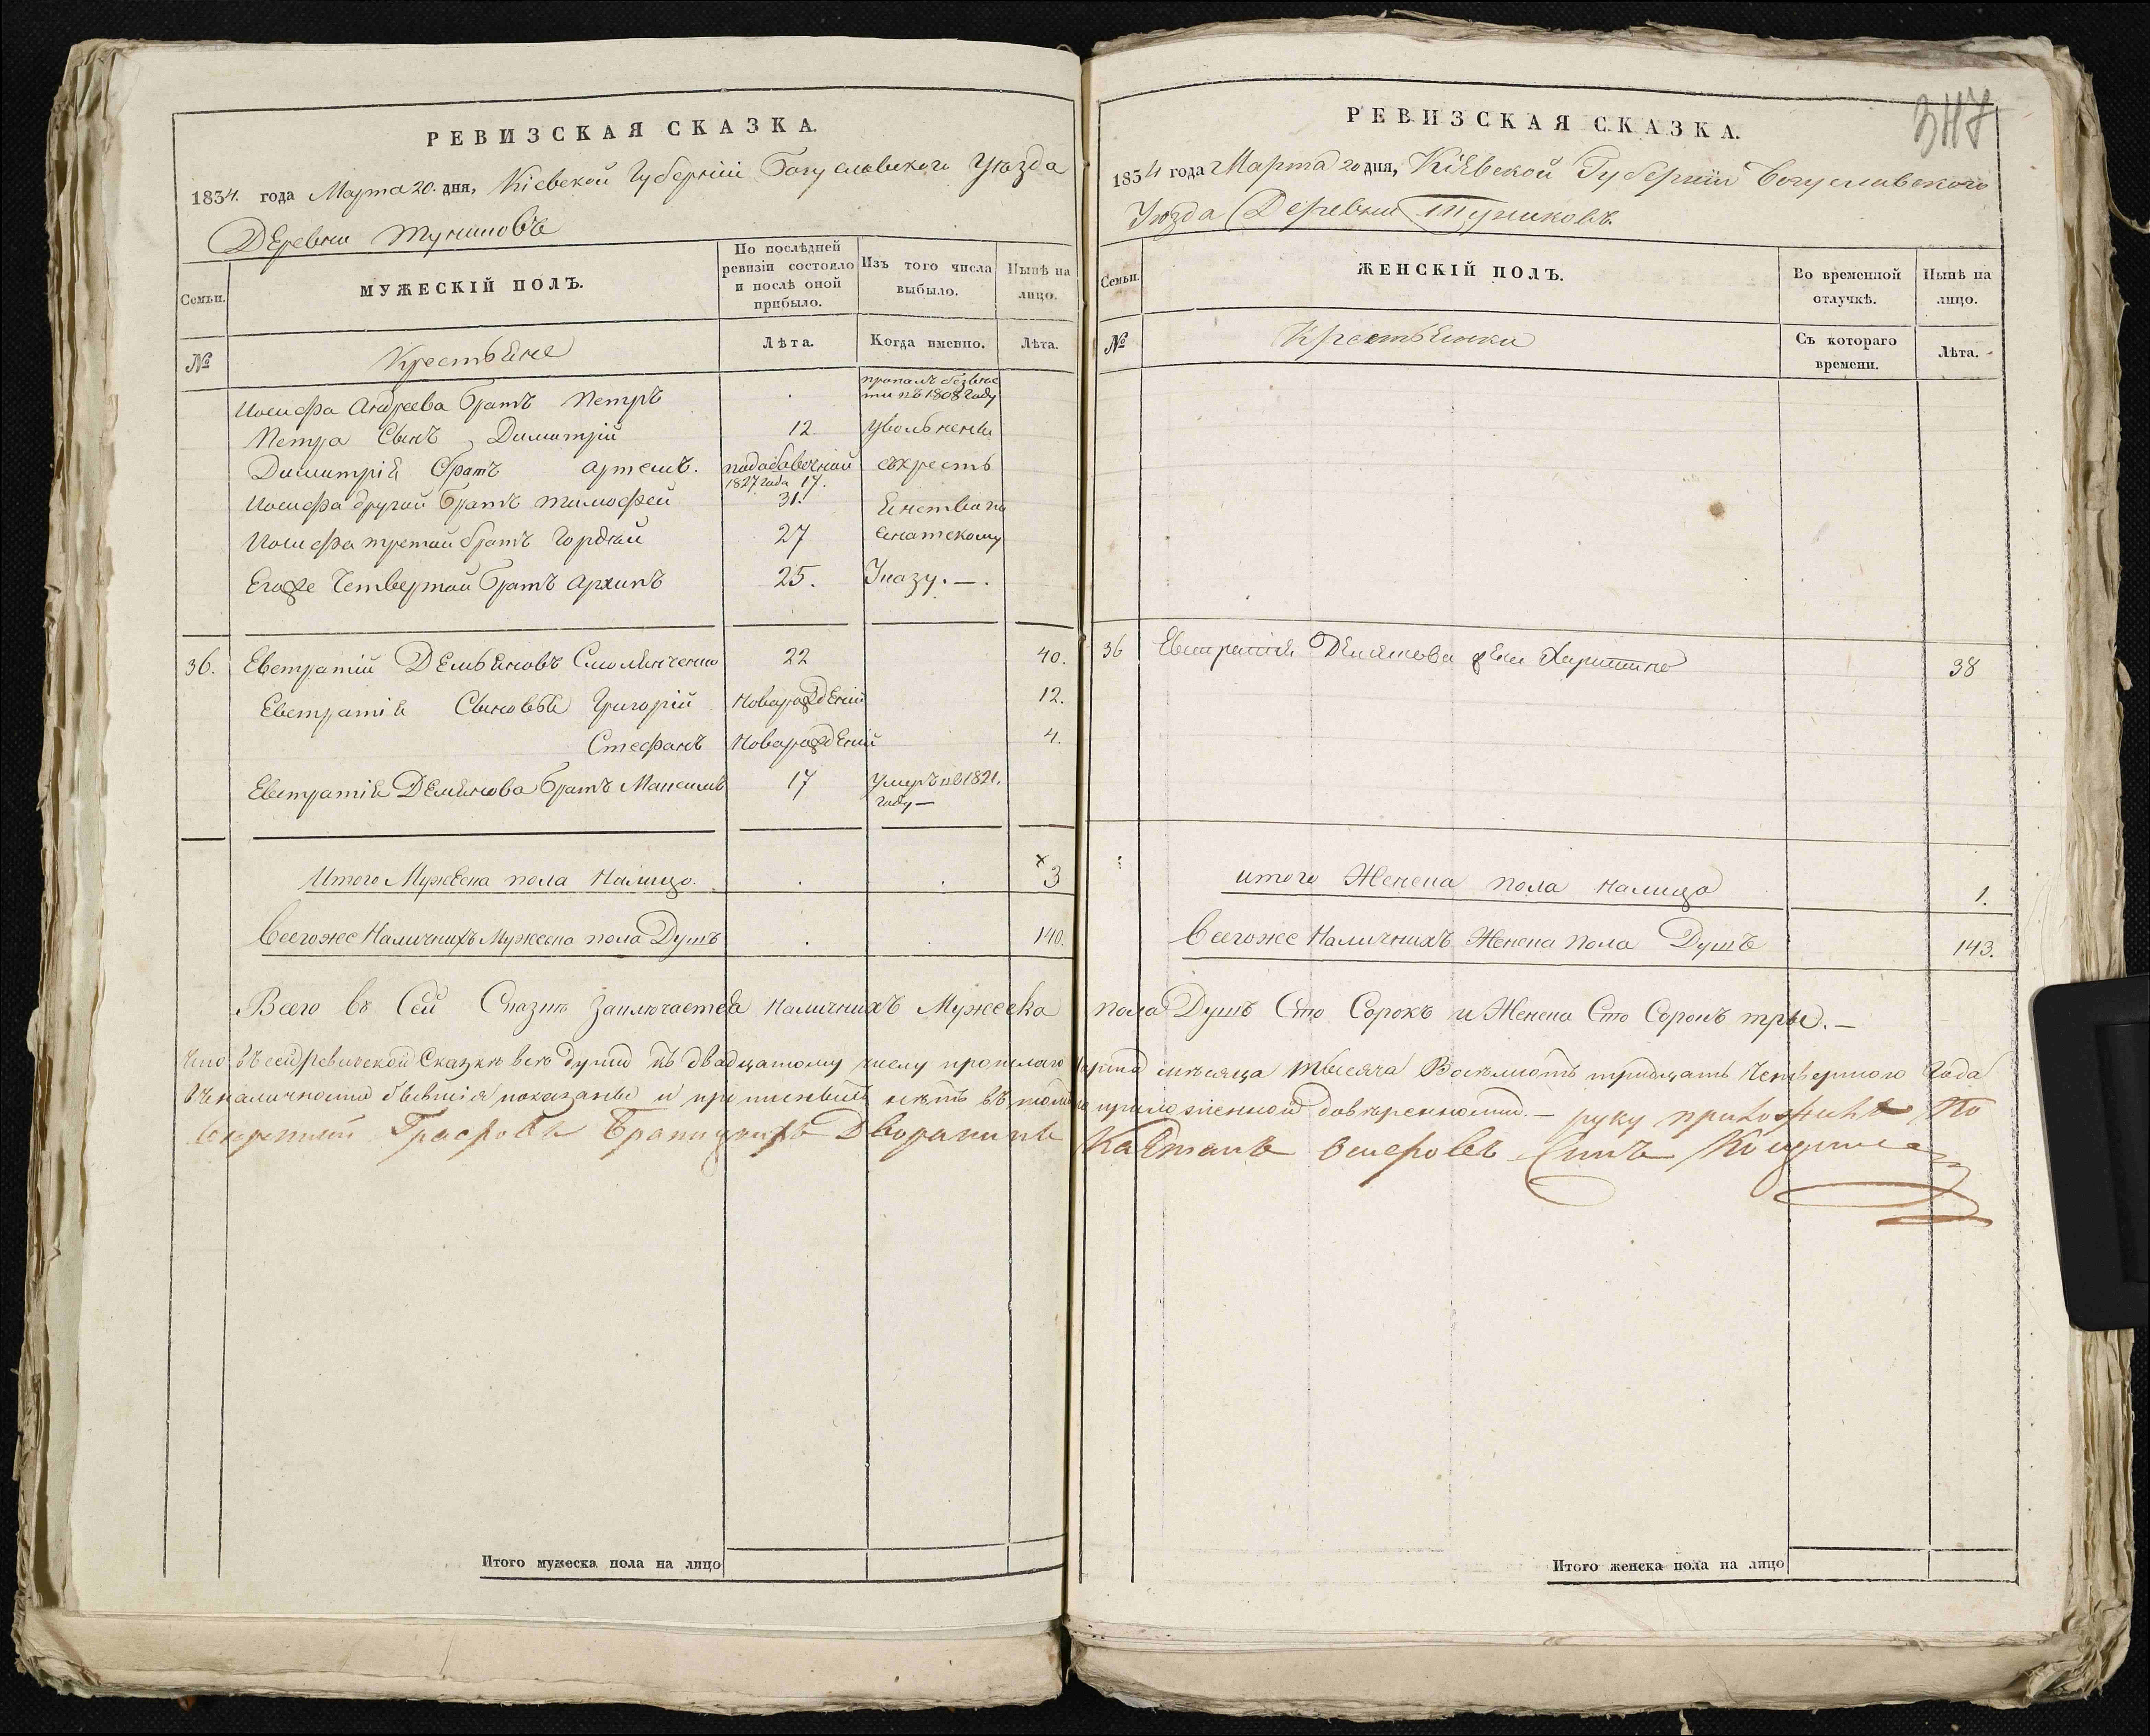 РЕВИЗСКАЯ СКАЗКА.
1834. года Марта 20. дня, Кіевской Губерніи Богуславскаго Уѣзда
Деревни Туниковъ
Семьи.
МУЖЕСКІЙ ПОЛЪ.
По послѣдней ревизіи состояло и послѣ оной прибыло.
Изъ того числа выбыло.
Нынѣ на лицо.
№
Крестьяне
Лѣта.
Когда имевно.
Лѣта.
Иосифа Андреева братъ Петръ . пропалъ безвѣс
ти въ 1808 году
Петра Сынъ Димитрій 12 Увольнены
Димитрія братъ Артемъ. подобавочной 1827 года 17. съкресть
Иосифа другой братъ Тимофей 31. Янстваго
Иосифа третой братъ Гордѣй 27 Сенатскому
Егоже Четвертой братъ Архипъ 25. Указу. —.
36. Евстратій Демьяновъ Смолянченко 22 40.
Евстратія Сыновья Григорій Новорожденій 12.
Стефанъ Новорожденій 4.
Евстратія Демянова братъ Максимъ 17 Умеръ въ 1821.
году —
Итого Мужеска пола Налицо. . . х 3
Всегоже Наличнихъ Мужеска пола Душъ . . 140.
Всего въ Сей Сказкѣ Заключается Наличнихъ Мужеска
Что въ сей ревизской Сказкѣ всѣ души къ двадцатому числу прошлаго
въ наличности бывшія показаны и прописныхъ нѣтъ въ томъ
Дворянинъ
Итого мужеска пола на лицо
РЕВИЗСКАЯ СКАЗКА.
347
1834 года Марта 20 дня, Кіевской Губерніи Богуславского
Уѣзда Деревни Туниковъ.
Семьи.
ЖЕНСКІЙ ПОЛЪ.
Во временной отлучкѣ.
Нынѣ на лицо.
№
Крестьянки
Съ котораго времени.
Лѣта.
36 Евстратія Демянова жена Харитина 38
итого Женска пола налицо 1.
Всегоже Наличнихъ Женска пола Душъ 143.
пола Душъ Сто Сорокъ и Женска Сто Сорокъ три. —
Марта мѣсяца тысяча Восемьсотъ тридцать Четвертого Года
приложенной довѣренности. — руку приложилъ
Каетанъ Сынъ
Итого женска пола на лицо